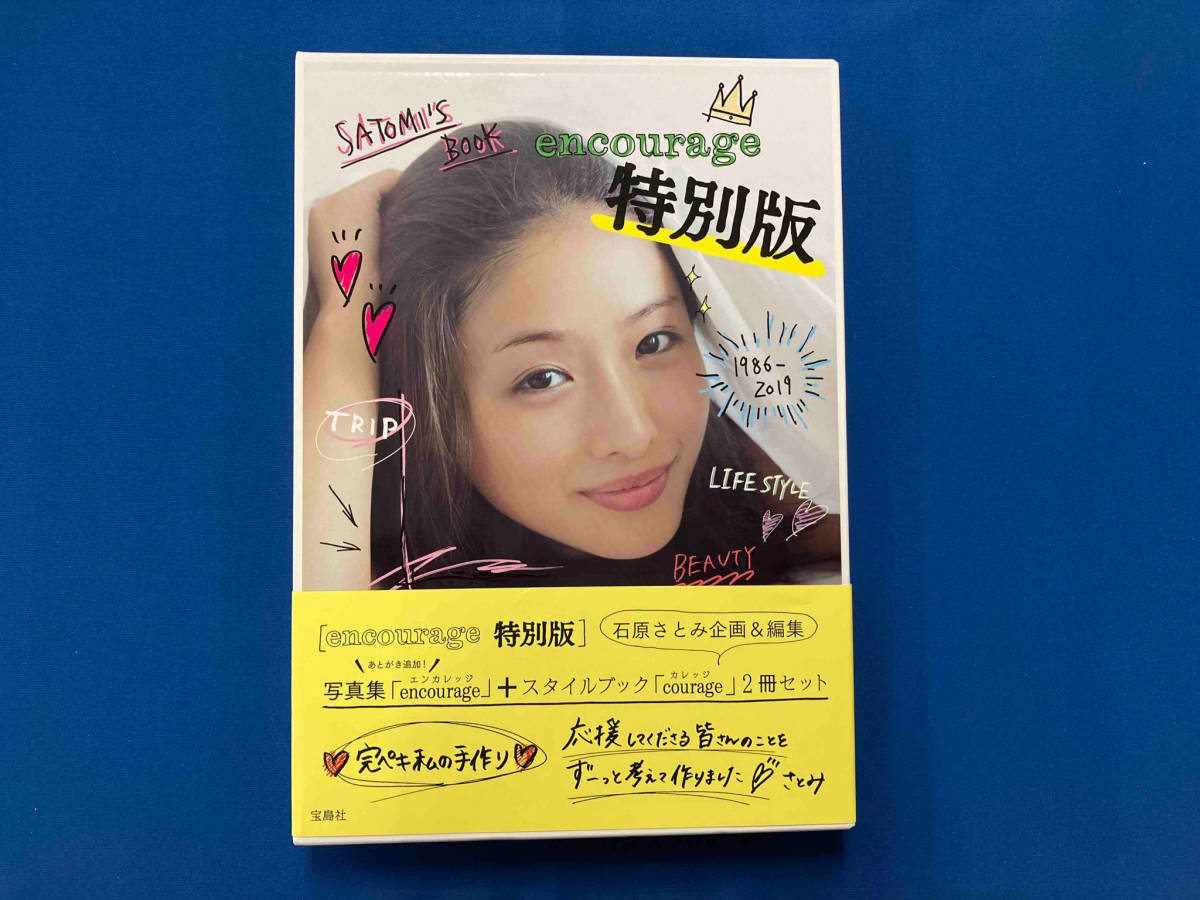 SATOMI'S
BOOK
encourage
特別版
1986-
2019
TRIP
LIFE STYLE
BEAUTY
[encourage 特別版]
石原さとみ企画&編集
あとがき追加!
エンカレッジ
カレッジ
写真集「encourage」+スタイルブック「courage」2冊セット
完ペキ私の手作り
応援してくださる皆さんのことを
ずーっと考えて作りました さとみ
宝島社